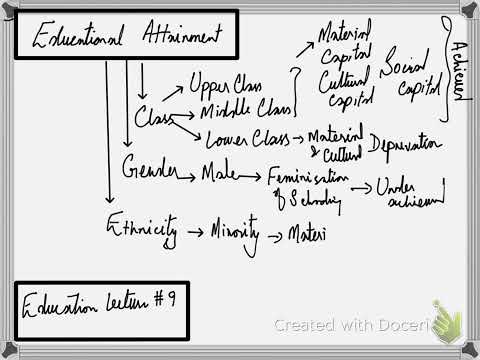 Educational Attainment
Class
Upper Class
Middle Class
Lower Class → Material & Cultural Deprivation
Material Capital
Cultural Capital
Social Capital
Achieved
Gender → Male → Feminisation of Schooling → Under achieved
Ethnicity → Minority → Materi
Education Lecture #9
Created with Doceri